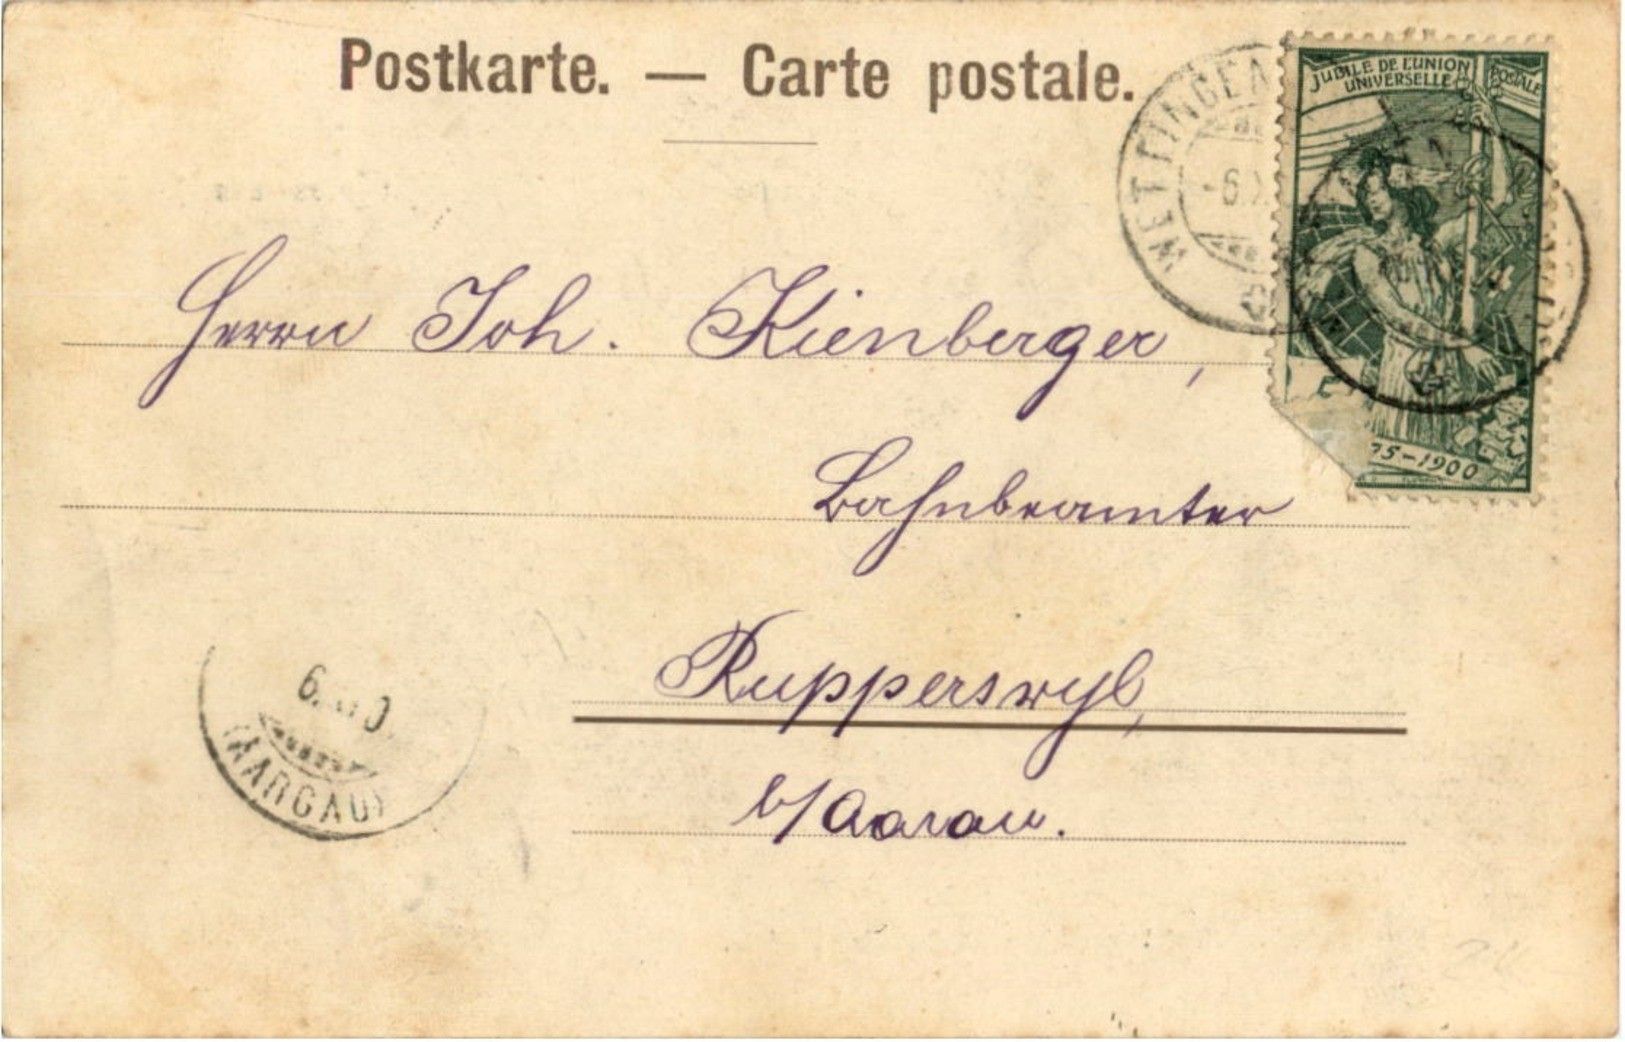 Postkarte. — Carte postale.
WETTINGEN
-6.X
JUBILÉ DE L'UNION POSTALE
UNIVERSELLE
75-1900
Herrn Joh. Kienberger,
Bahnbeamter
Rupperswyl,
b/Aarau.
6.
(AARGAU)